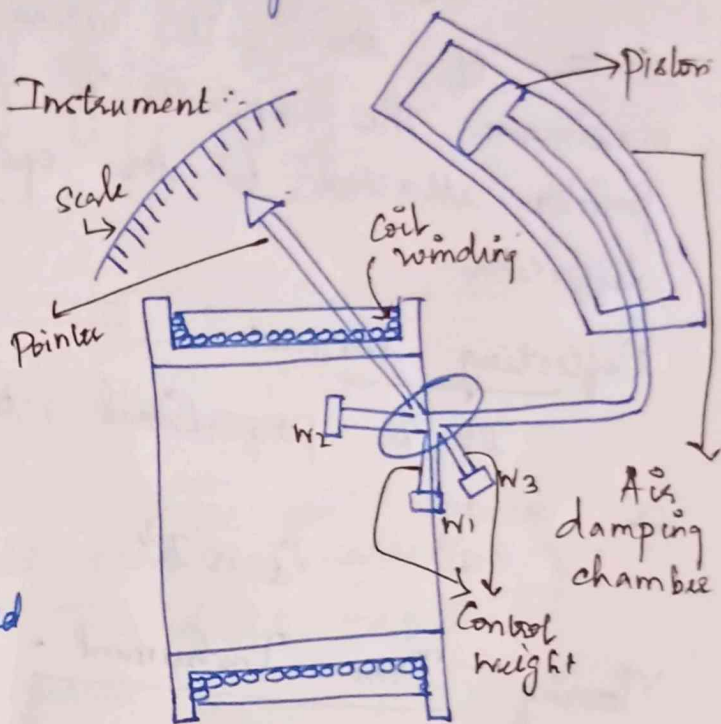 Instrument :-
Piston
Scale
Coil
winding
Pointer
W2
W3
W1
Air
damping
chamber
Control
weight
d